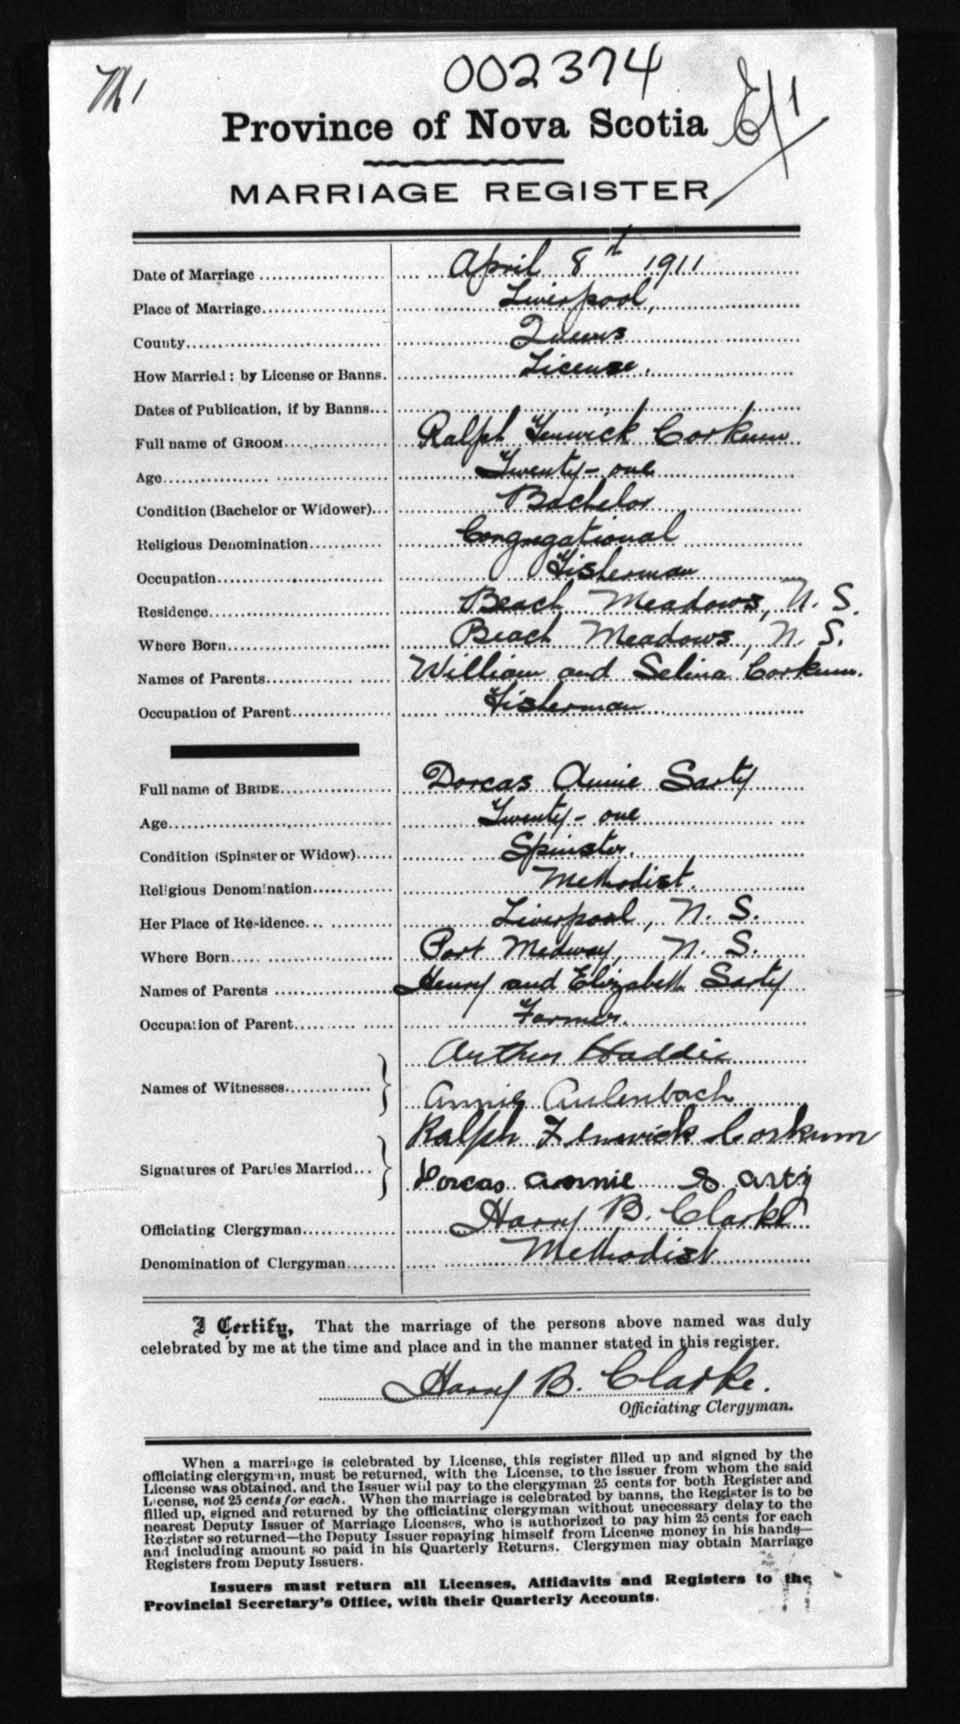 002374
Province of Nova Scotia
MARRIAGE REGISTER
Date of Marriage April 8th 1911
Place of Marriage Liverpool,
County Queens
How Married: by License or Banns. License.
Dates of Publication, if by Banns
Full name of GROOM Ralph Fenwick Corkum
Age Twenty-one
Condition (Bachelor or Widower) Bachelor
Religious Denomination Congregational
Occupation Fisherman
Residence Beach Meadows, N. S.
Where Born Beach Meadows, N. S.
Names of Parents William and Selina Corkum.
Occupation of Parent Fisherman
Full name of BRIDE Dorcas Annie Sarty
Age Twenty-one
Condition (Spinster or Widow) Spinster.
Religious Denomination Methodist.
Her Place of Residence Liverpool, N. S.
Where Born Port Medway, N. S.
Names of Parents Henry and Elizabeth Sarty
Occupation of Parent Farmer.
Names of Witnesses Arthur Haddic
Annie Aulenbach
Signatures of Parties Married Ralph Fenwick Corkum
Dorcas Annie Sarty
Officiating Clergyman Harry B. Clarke
Denomination of Clergyman Methodist
I Certify, That the marriage of the persons above named was duly
celebrated by me at the time and place and in the manner stated in this register.
Harry B. Clarke.
Officiating Clergyman.
When a marriage is celebrated by License, this register filled up and signed by the
officiating clergyman, must be returned, with the License, to the issuer from whom the said
License was obtained, and the Issuer will pay to the clergyman 25 cents for both Register and
License, not 25 cents for each. When the marriage is celebrated by banns, the Register is to be
filled up, signed and returned by the officiating clergyman without unnecessary delay to the
nearest Deputy Issuer of Marriage Licenses, who is authorized to pay him 25 cents for each
Register so returned—the Deputy Issuer repaying himself from License money in his hands—
and including amount so paid in his Quarterly Returns. Clergymen may obtain Marriage
Registers from Deputy Issuers.
Issuers must return all Licenses, Affidavits and Registers to the
Provincial Secretary's Office, with their Quarterly Accounts.